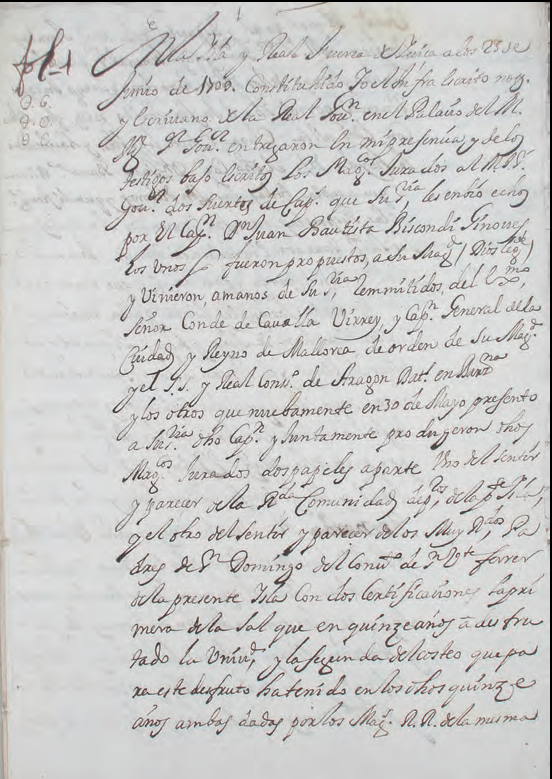 fol. 1
En la Isla y Real Fuerza de Iviça a los 23 de
Junio de 1709. Constituhido Jo el infraescrito not.
y escrivano de la Real Gov.n en el Palacio del M.
Ill. S.r Gov.r entregaron en mi presencia y de los
testigos bajo escritos Los Mag.cos Jurados al M. Ill.
Gov.r dos Puertos de Cap. que Su S.ria les enbió echos
por El Cap.n D.n Juan Bautista Biscondi Ginoves
los Unos fueron propuestos, a Su Mag.d (Dios le g.de)
y Vinieron, a manos de Su S.ria remmitidos, del Ex.mo
Señor Conde de Cavalla Virrey, y Cap.n General de la
Ciudad y Reyno de Mallorca de orden de Su Mag.d
y el S. S. y Real Cons.o de Aragon Dat. en Bar.na
y los otros que nuebamente en 30 de Mayo presento
a Su S.ria dho Cap.n y Juntamente produgeron dhos
Mag.cos Jurados dos papeles aparte Uno del sentir
y parecer de la R.da Comunidad de p.ros, de la p.te Isla,
y el otro del sentir y parecer de los Muy R.dos, Pa
dres de S.to Domingo del Conv.to de S.n V.te ferrer
de la presente Isla Con dos Certificaciones la pri
mera de la sal que en quinze años a des fru
tado la Univ.d, y la segunda del costeo que pa
ra este desfruto ha tenido en los dhos quinze
años ambas dadas por los Mag.s R. R. de la misma